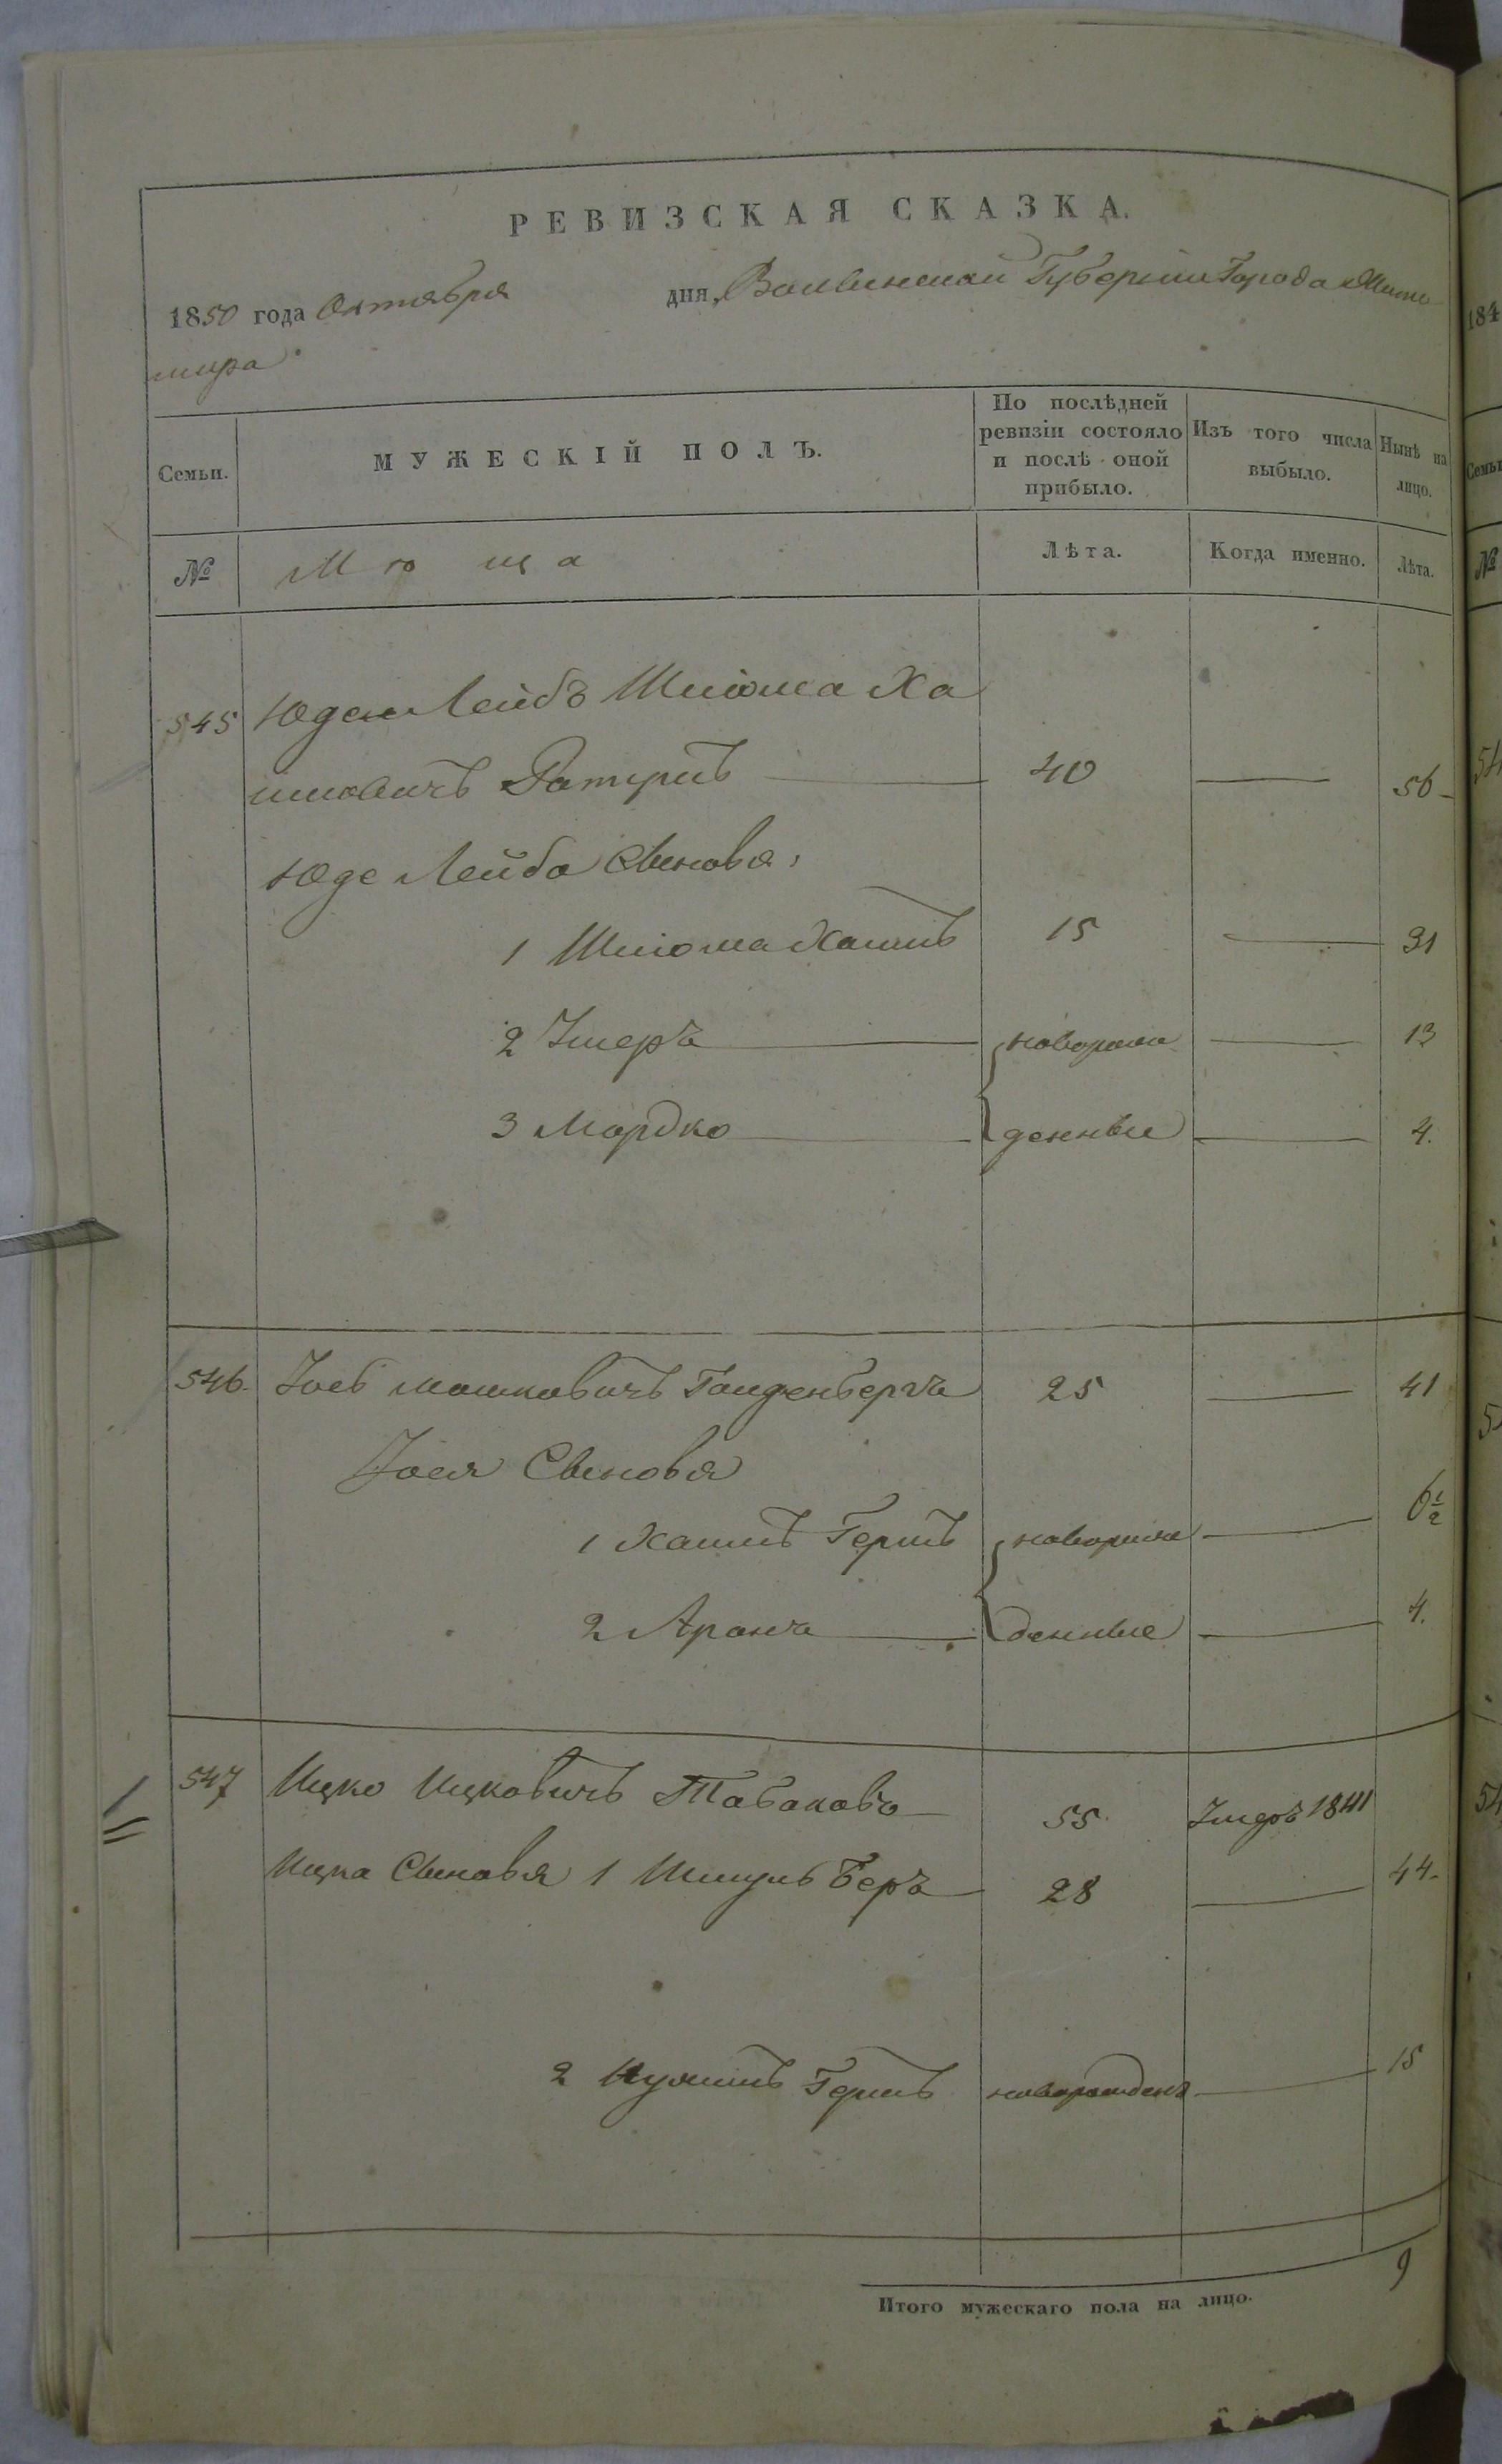 РЕВИЗСКАЯ СКАЗКА.
1850 года Октября дня, Волынской Губернии Города Жито
мира
Семьи. МУЖЕСКІЙ ПОЛЪ. По послѣдней ревизіи состояло и послѣ оной прибыло. Изъ того числа выбыло. Нынѣ на лицо.
№ Лѣта. Когда именно. Лѣта.
545 Юдель Лейбъ Шліома Ха
имовичъ 40 56
Юде Лейба Сыновья,
1 Шліома Хаимъ 15 31
2 Умеръ новорож 13
3 Мордко денные 4.
546. Іось Мошковичъ Голденбергъ 25 41
Іося Сыновья
1 Хаимъ Гершъ новорож 6 1/2
2 Аронъ денные 4.
547 Ицко Ицковичъ Табаковъ 55 Умеръ 1841
Ицка Сыновья 1 Шмуль Беръ 28 44
2 Нухимъ Гершъ новорожденъ 15
Итого мужескаго пола на лицо. 9
184
Семьи
№